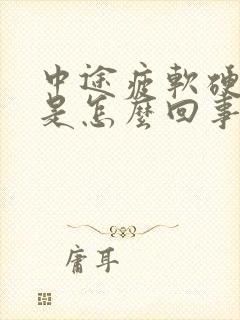 中途疲軟硬
是怎麼回事
庸耳